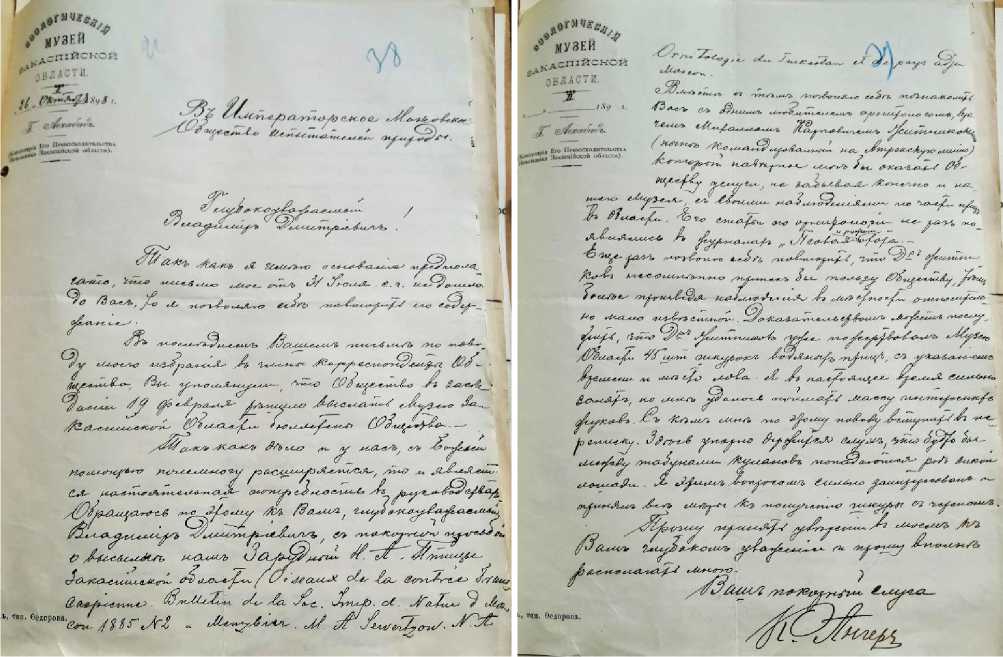 ЗООЛОГИЧЕСКІЙ
МУЗЕЙ
ЗАКАСПІЙСКОЙ
ОБЛАСТИ.
26 Октября 1898 г.
г. Асхабадъ.
38
Въ Императорское Московское
Общество испытателей природы.
Глубокоуважаемый
Владиміръ Дмитріевичъ!
Такъ какъ я имѣю основаніе предпола-
гать, что письмо мое отъ Іюля с.г. не дошло
до Васъ, то я позволяю себѣ повторить его содер-
жаніе.
Въ послѣднемъ Вашемъ письмѣ по пово-
ду моего избранія въ члены корреспонденты Об-
щества, Вы упомянули, что Общество въ засѣ-
даніи 19 февраля рѣшило выслать Музею За-
каспійской Области бюллетени Общества.
Такъ какъ дѣло и у насъ, съ Божьей
помощью понемногу расширяется, то и являет-
ся настоятельная потребность въ руководствахъ.
Обращаюсь по этому къ Вамъ, глубокоуважаемый
Владиміръ Дмитріевичъ, съ покорной просьбой
о высылкѣ намъ Зарудный Н. А. Птицы
Закаспійской области (Oiseaux de la contrée Trans-
caspienne. Bulletin de la Soc. Imp. d. Natur d. Mos-
cou 1885 N2 и Мензбиръ. M. A. Severtzow. N. A
тип. Ѳедорова.
ЗООЛОГИЧЕСКІЙ
МУЗЕЙ
ЗАКАСПІЙСКОЙ
ОБЛАСТИ.
189 г.
г. Асхабадъ.
Ornithologie du Turkestan et de pays adja
Moscou.
Вмѣстѣ съ тѣмъ позволю себѣ познакомить
Васъ съ однимъ любителемъ орнитологомъ, Вра-
чемъ Карповичемъ
(нынѣ командированный на
который навѣрное могъ бы оказать Об-
ществу услуги, не забывая конечно и на-
шего Музея, съ своими наблюденіями по части
въ области. Его статьи по орнитологіи не разъ по-
являлись въ журналѣ
Еще разъ позволю себѣ повторить, что Dr
несомнѣнно принесъ бы пользу Обществу,
болѣе производя наблюденія въ мѣстности относитель-
но мало извѣстной. Доказательствомъ можетъ послу-
жить, что Dr уже пожертвовалъ Музею
Области 45 шт шкурокъ водяныхъ птицъ, съ указаніемъ
времени и мѣста лова. Я въ настоящее время сильно
занятъ, но мнѣ удалось поймать массу интересныхъ
жуковъ. Съ кѣмъ мнѣ по этому поводу вступить въ пе-
реписку. Здѣсь упорно держится слухъ, что будто бы
между табунами кулановъ попадается родъ дикой
лошади. Я этимъ вопросомъ сильно заинтересованъ и
принялъ всѣ мѣры къ полученію шкуры съ черепомъ.
Прошу принять увѣреніе въ моемъ къ
Вамъ глубокомъ уваженіи и прошу вполнѣ
располагать мною.
Вашъ покорный слуга
К. Ангеръ
тип. Ѳедорова.